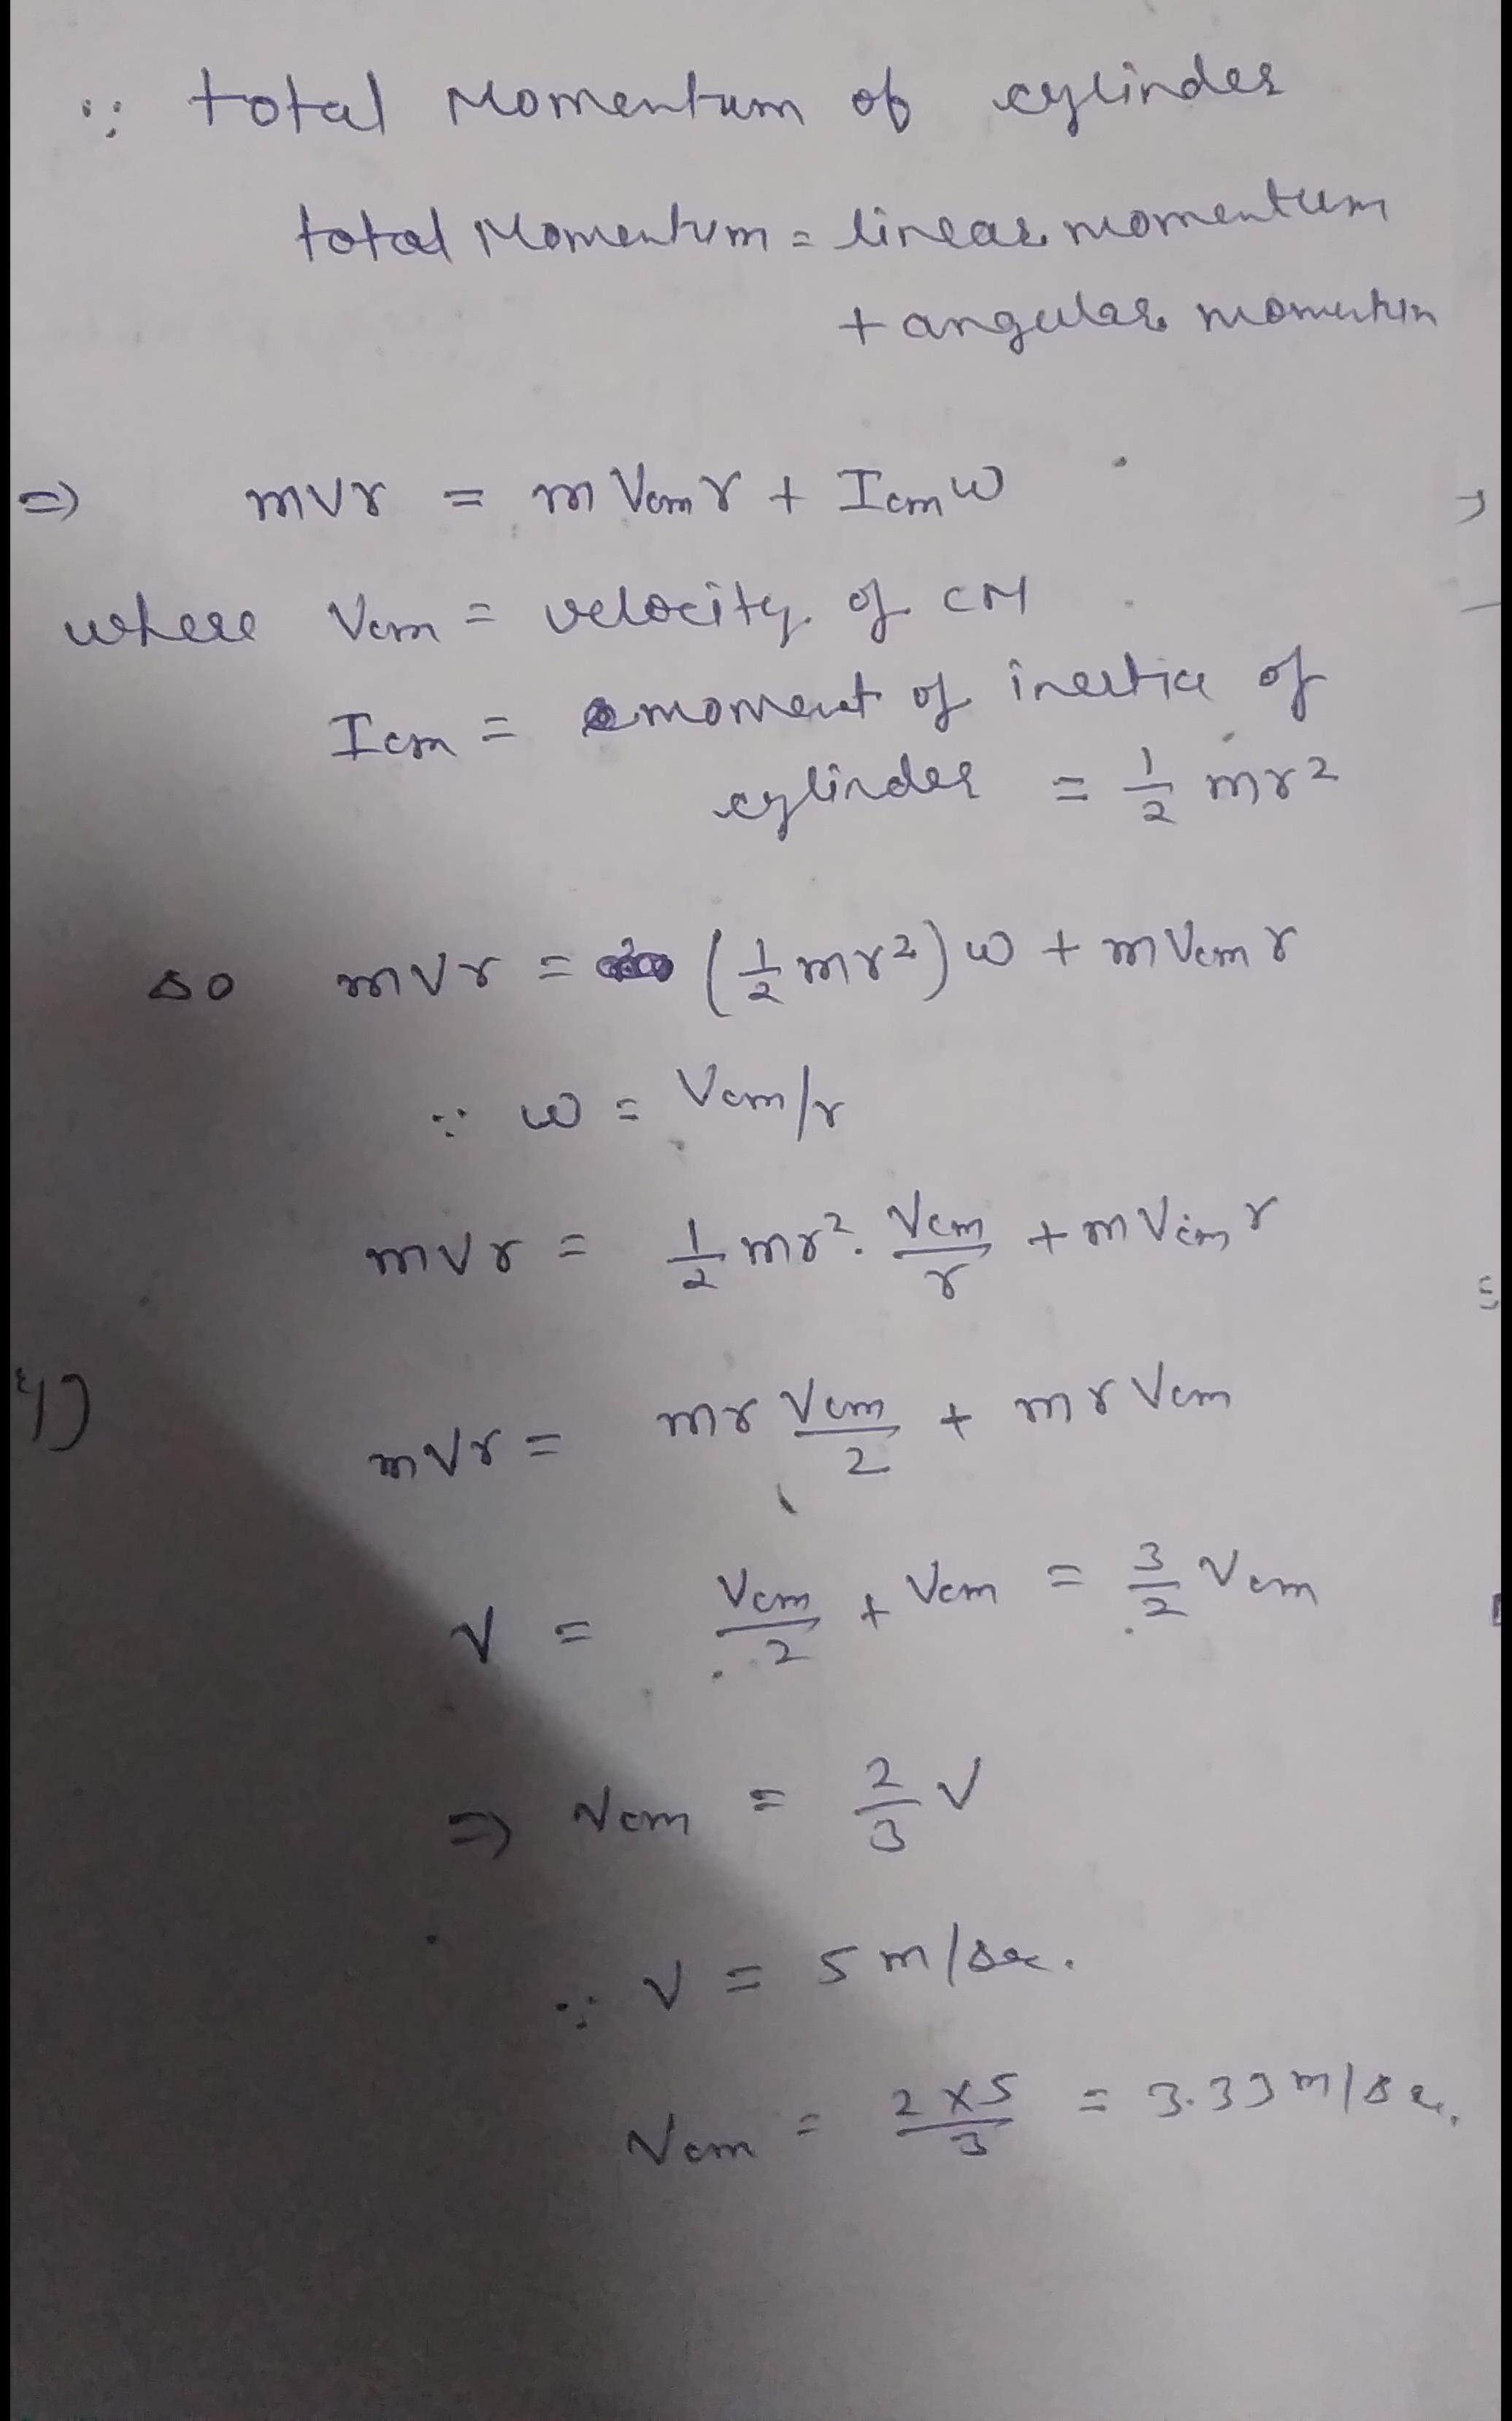 ∵ total Momentum of cylinder
total Momentum = linear momentum
+ angular momentum
=> mvr = m Vcm r + Icm ω
where Vcm = velocity of CM
Icm = moment of inertia of
cylinder = 1/2 mr²
so mvr = (1/2 mr²) ω + m Vcm r
∵ ω = Vcm/r
mvr = 1/2 mr² · Vcm/r + m Vcm r
4)
mvr = mr Vcm/2 + mr Vcm
V = Vcm/2 + Vcm = 3/2 Vcm
=> Vcm = 2/3 V
∵ V = 5 m/sec.
Vcm = 2×5/3 = 3.33 m/sec.